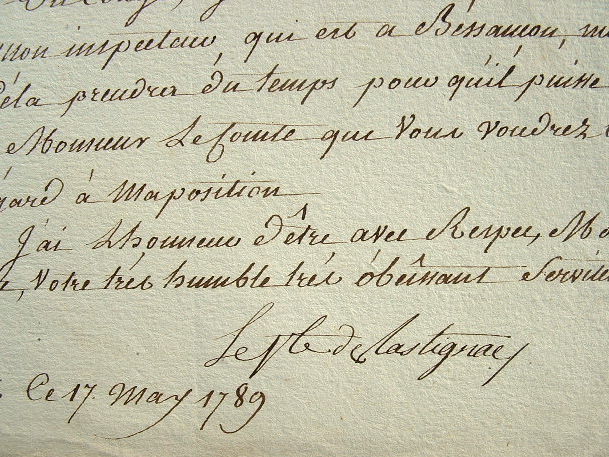 mon inspecteur, qui est a Béssancon, m
déla prendra du temps pour qu'il puisse
Monsieur Le Comte que Vous voudrez
gard à maposition
J'ai Lhonneur d'être avec Respec, Mo
, Votre trés humble trés obeîssant Servite
Le Vte de Lastignac
Ce 17 May 1789